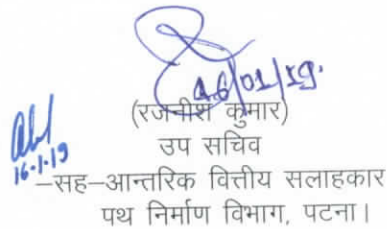 16/01/19.
(रजनीश कुमार)
उप सचिव
16-1-19
–सह–आन्तरिक वित्तीय सलाहकार
पथ निर्माण विभाग, पटना।